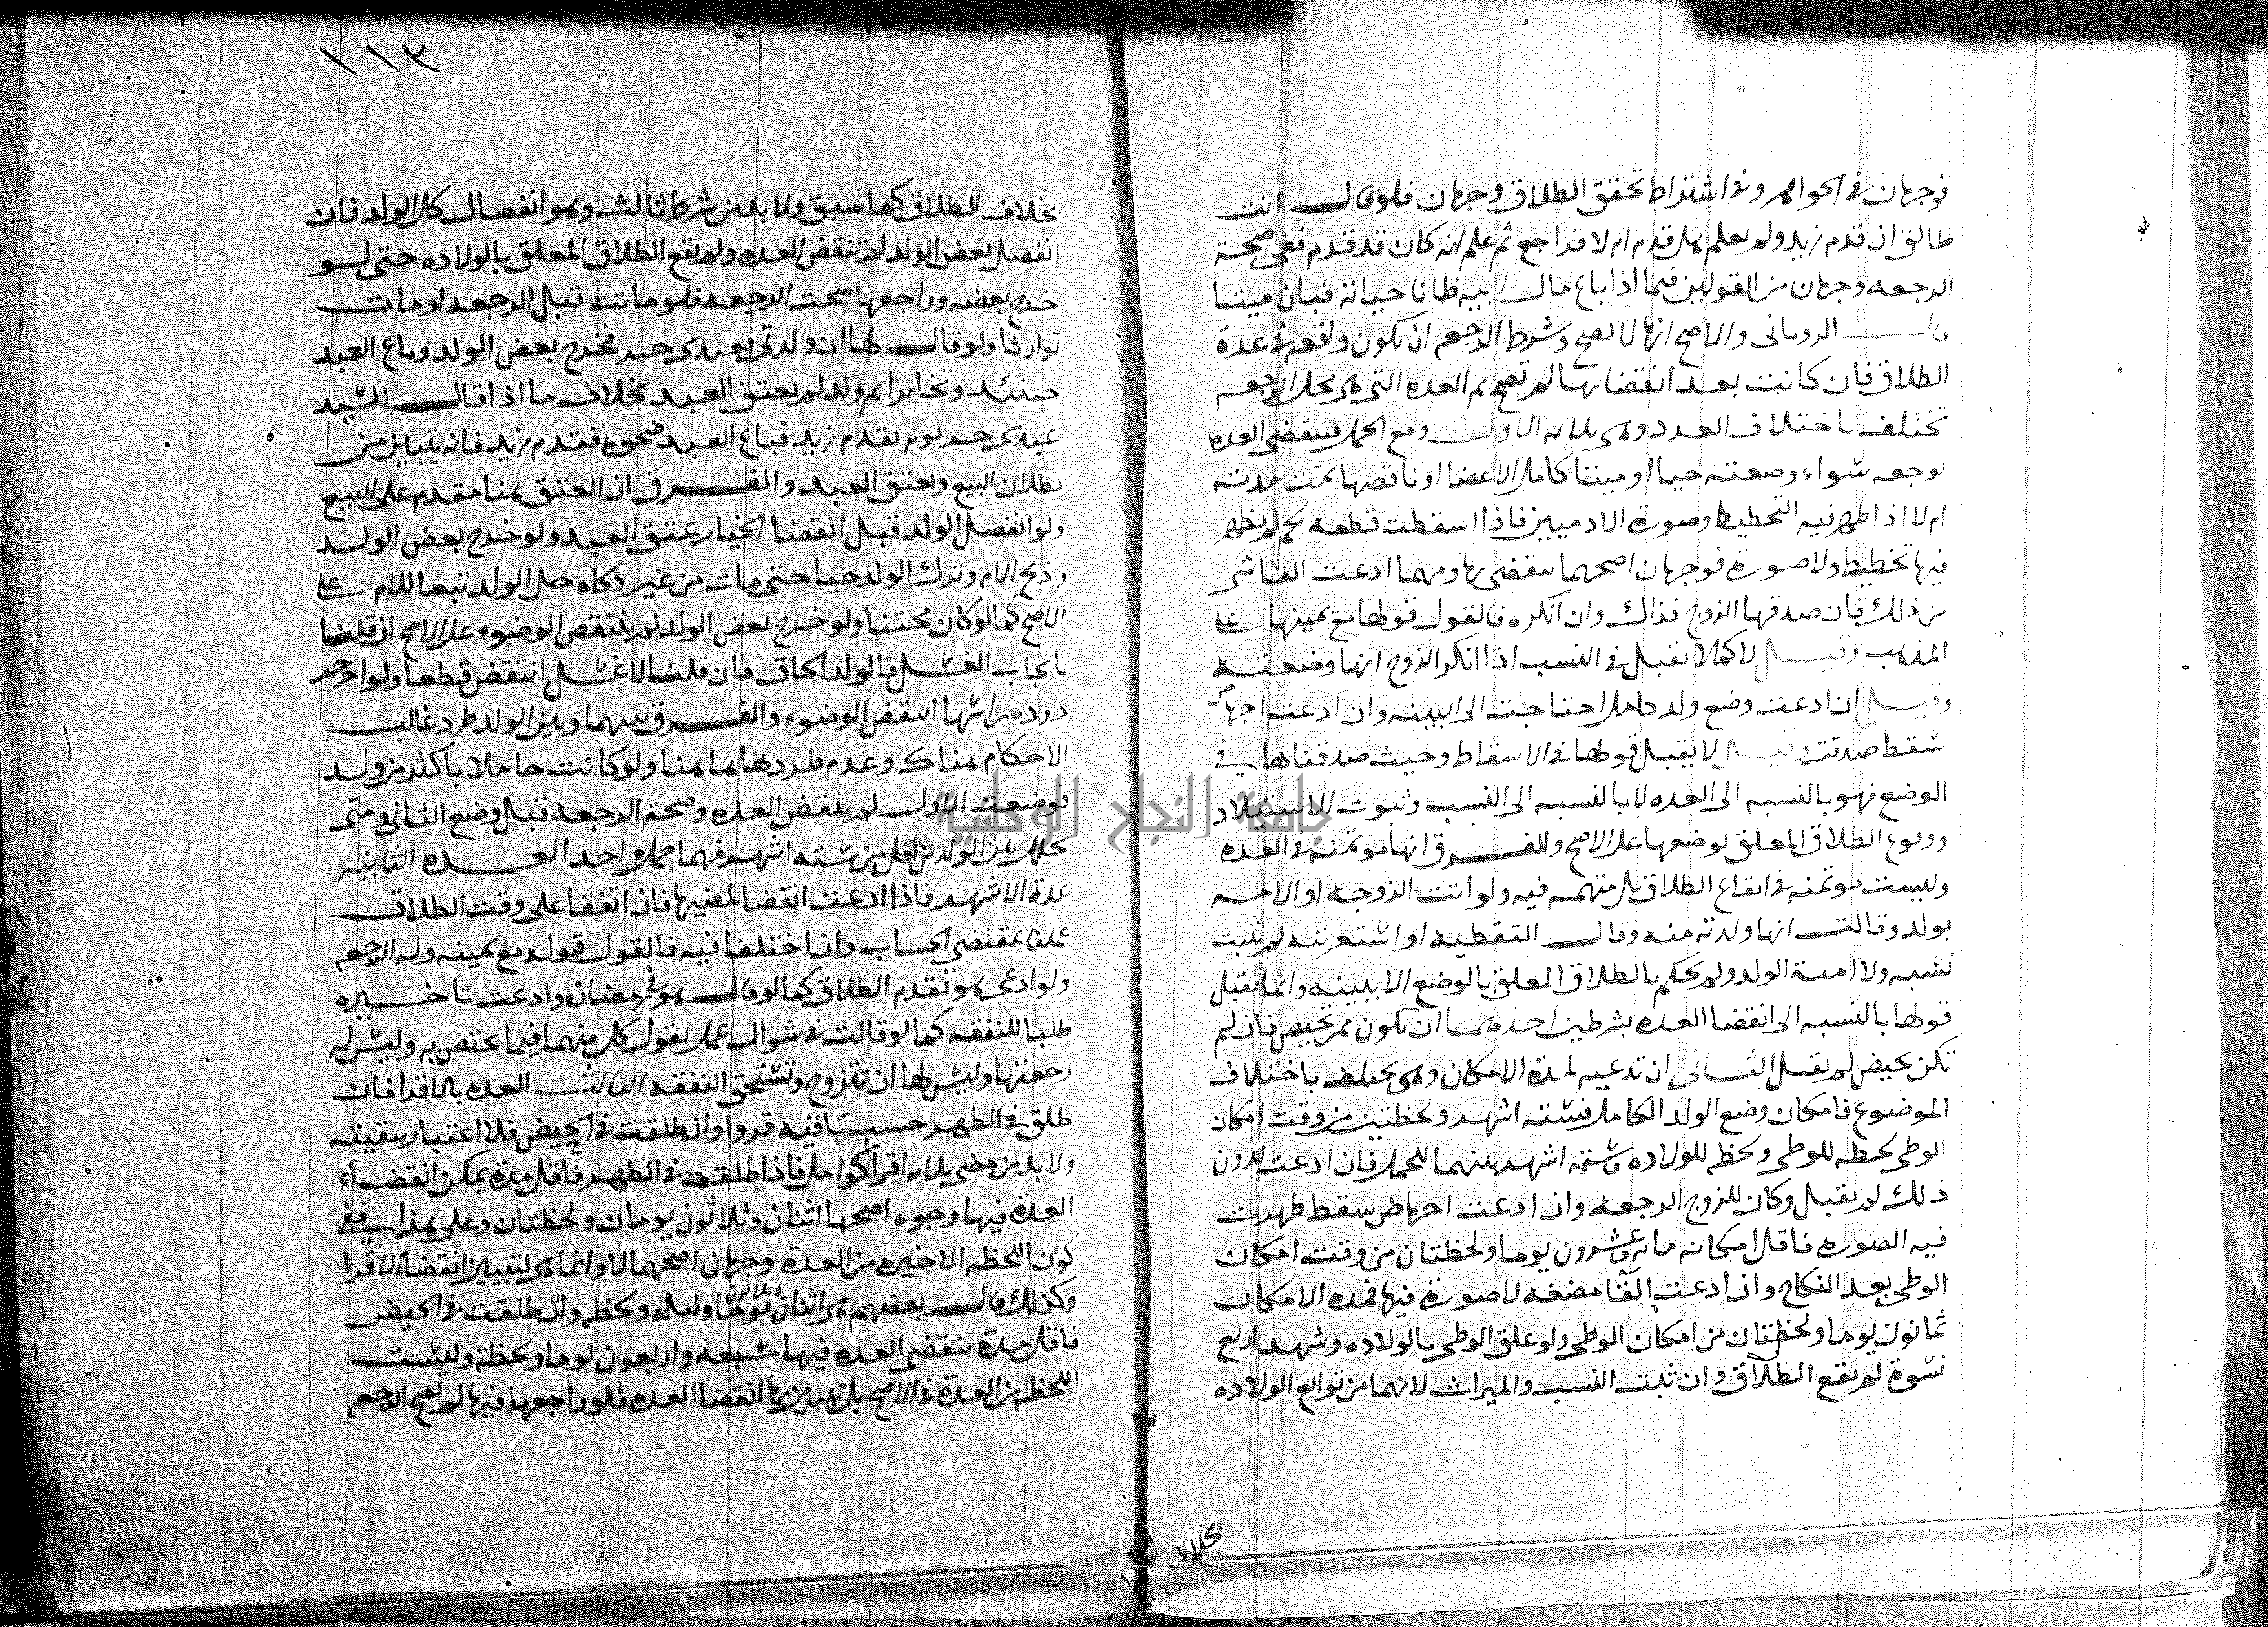 فوجهان في الحواهر وفي اشتراط تحقق الطلاق وجهان فلو قال انت
طالق ان قدم زيد ولم يعلم هل قدم ام لا فراجع ثم علم انه كان قد قدم ففي صحة
الرجعه وجهان من القولين فيما اذا باع مال ابيه ظانا حياته فبان ميتا
قال الروياني والاصح انها لا تصح وشرط الرجعه ان تكون واقعه في عدة
الطلاق فان كانت بعد انقضايها لم تصح ثم العده التي هي محل الرجعه
تختلف باختلاف العدد وهي ثلاثه الاول وضع الحمل فتنقضي العده
بوضعه سواء وضعته حيا او ميتا كامل الاعضا او ناقصها تمت مدته
ام لا اذا ظهر فيه التخطيط وصورة الادميين فاذا اسقطت قطعه لحم لم يظهر
فيها تخطيط ولا صورة فوجهان اصحهما تنقضي بها ومهما ادعت
من ذلك فان صدقها الزوج فذاك وان انكره فالقول قولها مع يمينها على
المذهب وقيل لا كما لا تقبل في النسب اذا انكر الزوج انها وضعته
وقيل ان ادعت وضع ولد كامل احتاجت الى البينه وان ادعت اجهاض
سقط صدقت وقيل لا يقبل قولها في الاسقاط وحيث صدقناها في
الوضع فهو بالنسبه الى العده لا بالنسبه الى النسب وثبوت الاستيلاد
ووقوع الطلاق المعلق بوضعها على الاصح والفرق انها موتمنه في العده
وليست موتمنه في ايقاع الطلاق بل متهمه فيه ولو اتت الزوجه او الامه
بولد وقالت انها ولدته منه وقال التقطيه او استعرتيه لم يثبت
نسبه ولا امية الولد ولم يحكم بالطلاق المعلق بالوضع الا ببينه وانما يقبل
قولها بالنسبه الى انقضا العده بشرطين احدهما ان تكون ممن تحيض فان لم
تكن تحيض لم يقبل الثاني ان تدعيه لمدة الامكان وهي تختلف باختلاف
الموضوع فامكان وضع الولد الكامل بستة اشهر ولحظتين من وقت امكان
الوطي لحظه للوطي ولحظه للولاده وستة اشهر بينهما للحمل فان ادعت لدون
ذلك لم يقبل وكان للزوج الرجعه وان ادعت اجهاض سقط ظهرت
فيه الصوره فاقل امكانه مايه وعشرون يوما ولحظتان من وقت امكان
الوطي بعد النكاح وان ادعت القا مضغه لا صورة فيها فمده الامكان
ثمانون يوما ولحظتان من امكان الوطي ولو علق الوطي بالولاده وشهد اربع
نسوة لم يقع الطلاق وان ثبت النسب والميراث لانهما من توابع الولاده
بخلاف
١١٣
بخلاف الطلاق كما سبق ولا بد من شرط ثالث وهو انفصال كل الولد فان
انفصل بعض الولد لم تنقض العده ولم يقع الطلاق المعلق بالولاده حتى لو
خرج بعضه وراجعها صحت الرجعه فلو ماتت قبل الرجعه او مات
توارثا ولو قال لها ان ولدتي فعبدي حر فخرج بعض الولد وباع العبد
حينئذ وتخايرا ثم ولد لم يعتق العبد بخلاف ما اذا قال السيد
عبدي حر يوم يقدم زيد فباع العبد ضحوه فقدم زيد فانه يتبين من
بطلان البيع وبعتق العبد والفرق ان العتق هنا مقدم على البيع
ولو انفصل الولد قبل انقضا الخيار عتق العبد ولو خرج بعض الولد
وذبح الام وترك الولد حيا حتى مات من غير ذكاه حل الولد تبعا للام على
الاصح كما لو كان مجتنا ولو خرج بعض الولد لم ينتقض الوضوء على الاصح ان قلنا
بايجاب الغسل فالولد الجاف وان قلنا لا غسل انتقض قطعا ولو اخرجت
دوده راسها انتقض الوضوء والفرق بينهما وبين الولد طرد غالب
الاحكام هناك وعدم طردها هاهنا ولو كانت حاملا باكثر من ولد
فوضعت الاول لم ينقض العده وصحة الرجعه قبل وضع الثاني ومتى
تخلل بين الولدين اقل من ستة اشهر فهما حمل واحد العده الثانيه
عدة الاشهر فاذا ادعت انقضا لمضيها فان اتفقا على وقت الطلاق
عملنا بمقتضى الحساب وان اختلفا فيه فالقول قوله مع يمينه وله الرجعه
ولو ادعى هو تقدم الطلاق كما لو قال هو في رمضان وادعت تاخيره
طلبا للنفقه كما لو قالت في شوال عمل بقول كل منهما فيما يختص به وليس له
رجعتها وليس لها ان تتزوج وتستحق النفقه الثالث العده بالاقرا فان
طلق في الطهر حسب باقيه قروا وان طلقت في الحيض فلا اعتبار ببقيته
ولا بد من مضي ثلاثه اقرا كوامل فاذا طلقت في الطهر فاقل مدة يمكن انقضاء
العدة فيها وجوه اصحها اثنان وثلاثون يومان ولحظتان وعلى هذا ففي
كون اللحظه الاخيره من العدة وجهان اصحهما لا وانما هي لتبيين انقضا الاقرا
وكذلك قال بعضهم هي اثنان وثلاثون يوما وليله ولحظه وان طلقت في الحيض
فاقل مدة تنقضي العده فيها سبعه واربعون يوما ولحظة وليست
اللحظه من العدة في الاصح بل يتبين بها انقضا العده فلو راجعها فيها لم تصح الرجعه
جامعة النجاح الوطنية